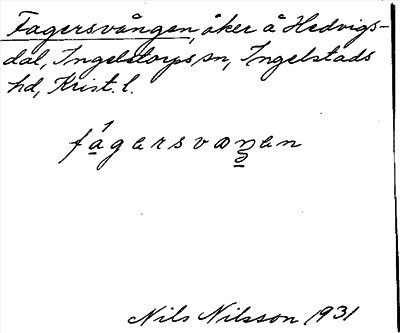 Fagersvången, åker å Hedvigs-
dal, Ingelstorps sn, Ingelstads
hd, Krist. l.
fagersvaŋen
Nils Nilsson 1931